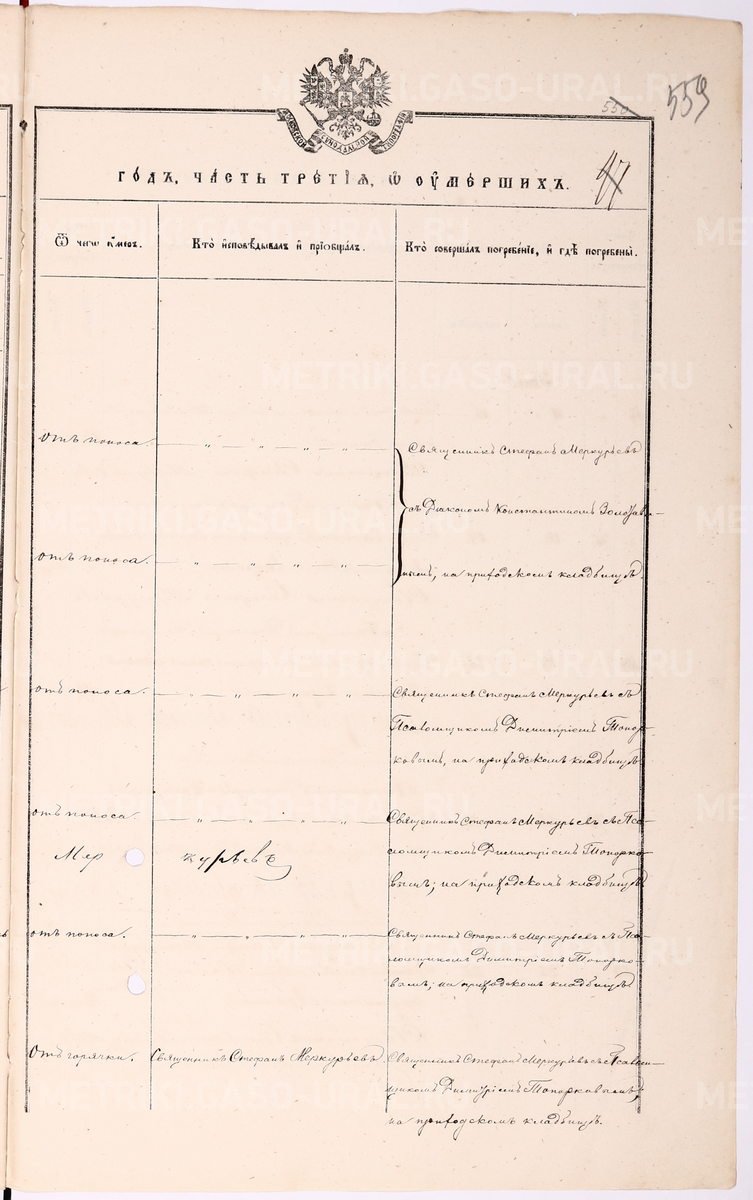 550
559
ГО́ДЪ, ЧА́СТЬ ТРЕ́ТІѦ, Ѿ ОУМЕ́РШИХЪ.
47
Ѿ чегѡ оу́меръ.
Кто̀ и҆сповѣ́дывалъ и҆ прїѡбща́лъ.
Кто̀ соверша́лъ погребе́нїе, и҆ гдѣ̀ погребены̀.
отъ поноса.
Священникъ Стефанъ Меркурьевъ
съ Діакономъ Константиномъ
отъ поноса.
нымъ, на приходскомъ кладбищѣ.
отъ поноса.
Священникъ Стефанъ Меркурьевъ съ
Псаломщикомъ Димитріемъ Топор-
ковымъ, на приходскомъ кладбищѣ.
отъ поноса.
Священникъ Стефанъ Меркурьевъ съ Пса-
ломщикомъ Димитріемъ Топорко-
Меркурьевъ
вымъ; на приходскомъ кладбищѣ.
отъ поноса.
Священникъ Стефанъ Меркурьевъ съ Пса-
ломщикомъ Димитріемъ Топорко-
вымъ; на приходскомъ кладбищѣ.
Отъ горячки.
Священникъ Стефанъ Меркурьевъ.
Священникъ Стефанъ Меркурьевъ съ Псалом-
щикомъ Димитріемъ Топорковымъ,
на приходскомъ кладбищѣ.
METRIKI.GASO-URAL.RU